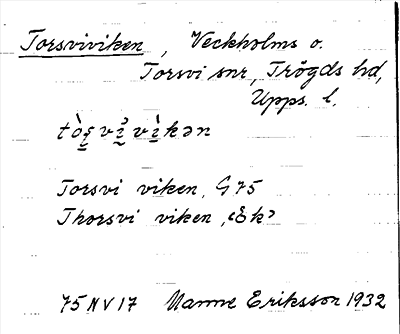 Torsviviken, Veckholms o.
Torsvi snr, Trögds hd,
Upps. l.
tòș̱vỉ̱vi̱̇kən
Torsvi viken, G75
Thorsvi viken, ‹Ek›
75NV17 Manne Eriksson 1932